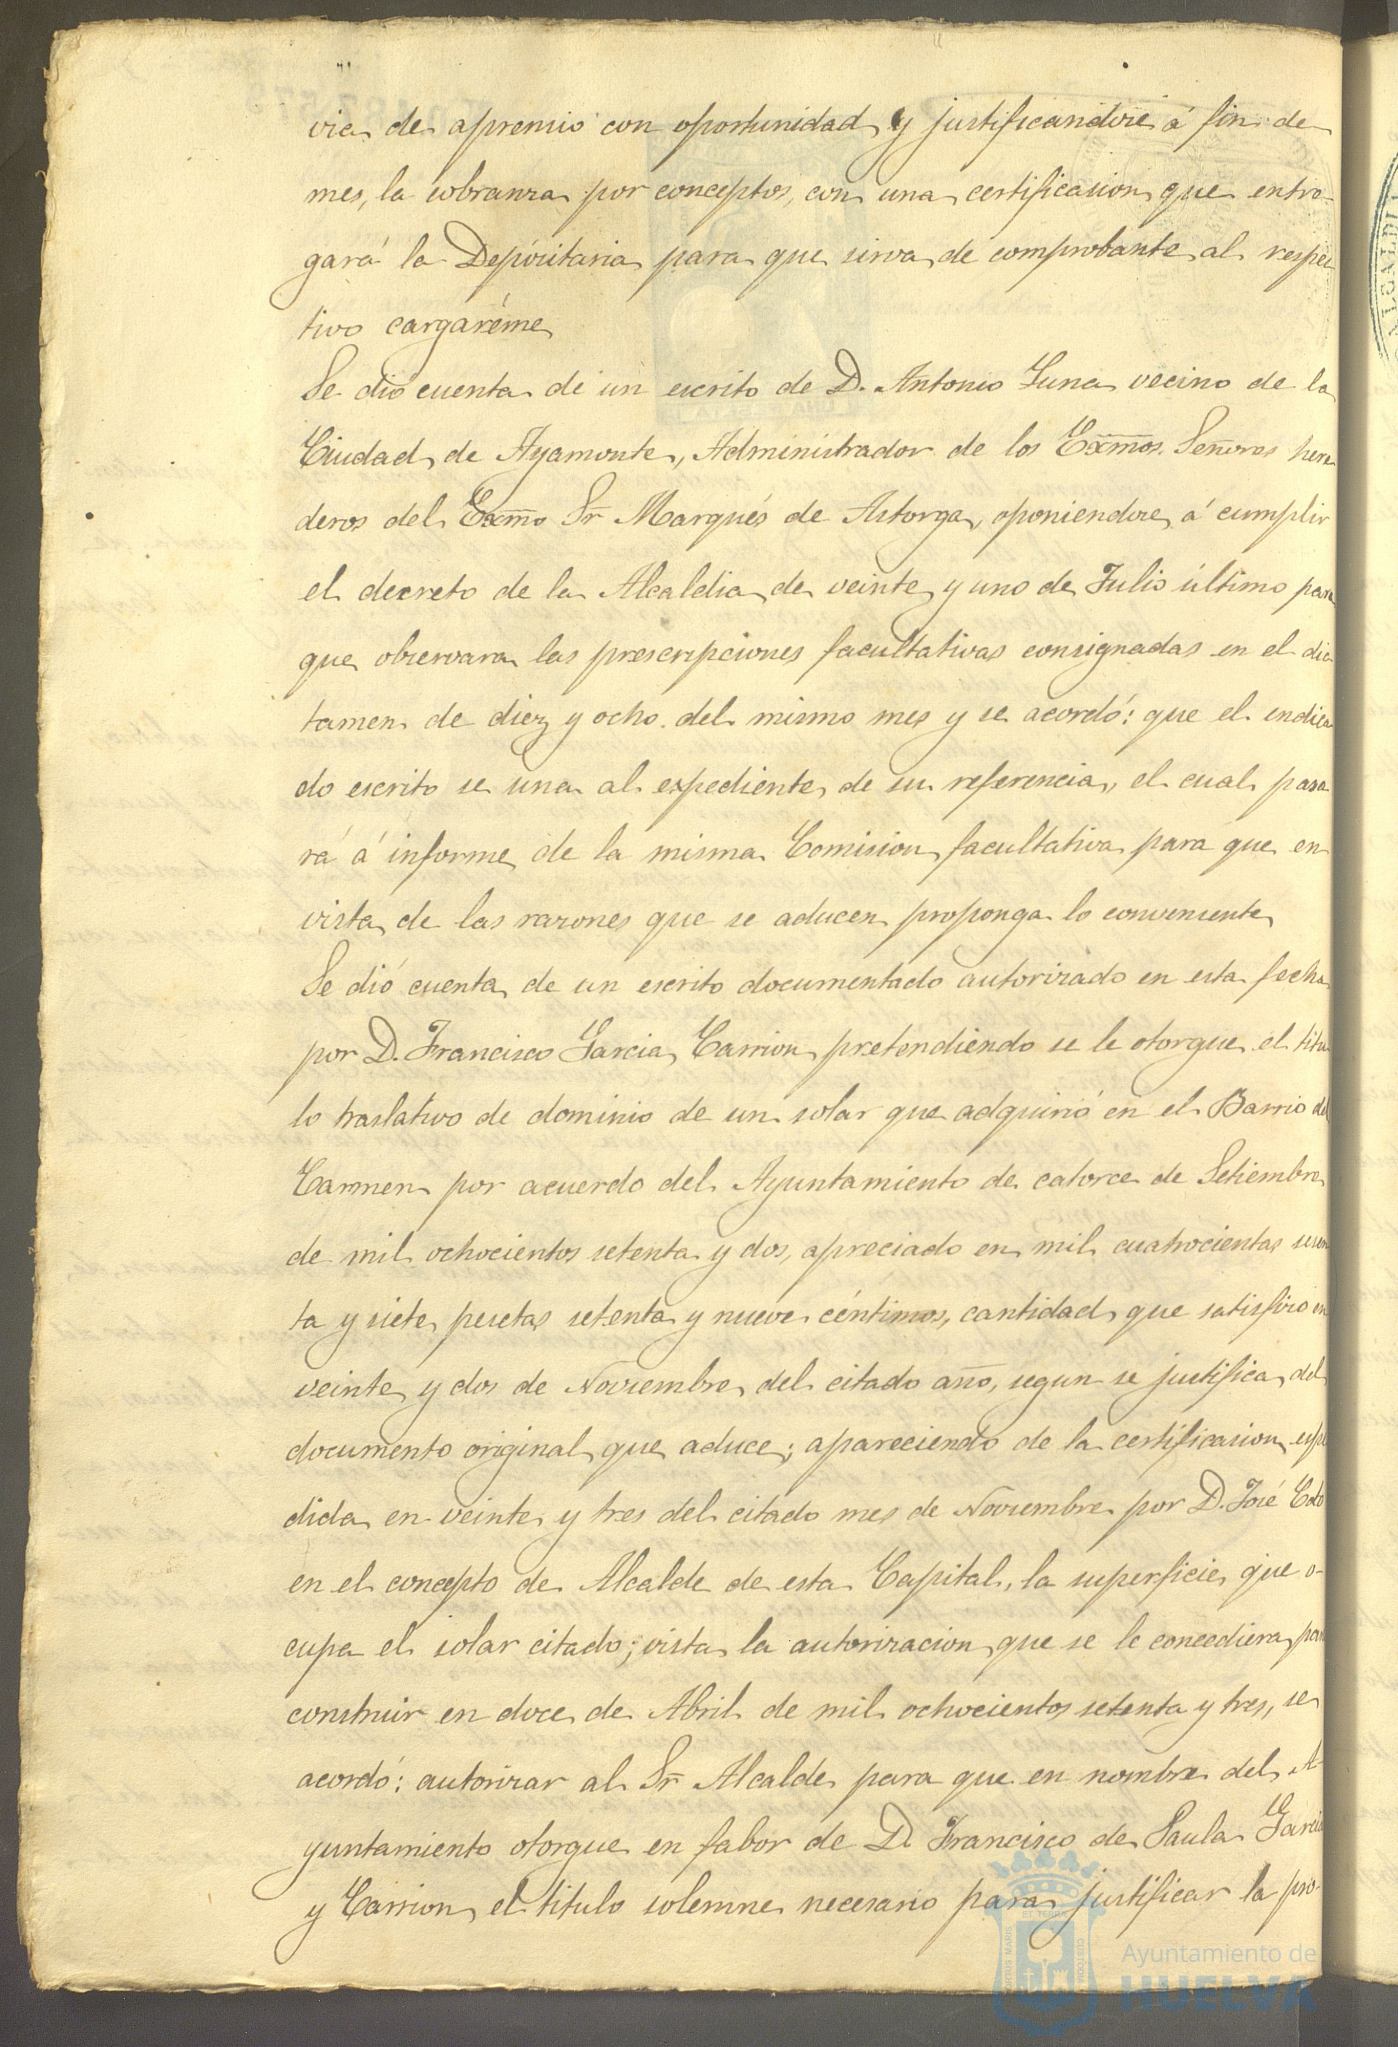 via de apremio con oportunidad y justificandose á fin de
mes, la cobranza por conceptos, con una certificacion que entre-
gará la Depósitaria para que sirva de comprobante al respec
tivo cargaréme
Se dió cuenta de un escrito de D. Antonio Luna vecino de la
Ciudad de Ayamonte, Administrador de los Exmos. Señores here
deros del Exmo Sr Marqués de Astorga, oponiendose á cumplir
el decreto de la Alcaldia de veinte y uno de Julio último para
que observara las prescripciones facultativas consignadas en el dic
tamen de diez y ocho del mismo mes y se acordó: que el indica
do escrito se una al expediente de su referencia, el cual pasa
rá á informe de la misma Comision facultativa para que en
vista de las razones que se aducen proponga lo conveniente
Se dió cuenta de un escrito documentado autorizado en esta fecha
por D. Francisco Garcia Carrion pretendiendo se le otorgue el titu
lo traslativo de dominio de un solar que adquirió en el Barrio del
Carmen por acuerdo del Ayuntamiento de catorce de Setiembre
de mil ochocientos setenta y dos, apreciado en mil cuatrocientas sesen
ta y siete pesetas setenta y nueve céntimos, cantidad que satisfizo en
veinte y dos de Noviembre del citado año, segun se justifica del
documento original que aduce; apareciendo de la certificacion espe
dida en veinte y tres del citado mes de Noviembre por D. José Coto
en el concepto de Alcalde de esta Capital, la superficie que o-
cupa el solar citado; vista la autorizacion que se le concediera para
construir en doce de Abril de mil ochocientos setenta y tres, se
acordó: autorizar al Sr Alcalde para que en nombre del A-
yuntamiento otorgue en fabor de D. Francisco de Paula Garcia
y Carrion el titulo solemne necesario para justificar la pro-
Ayuntamiento de
HUELVA